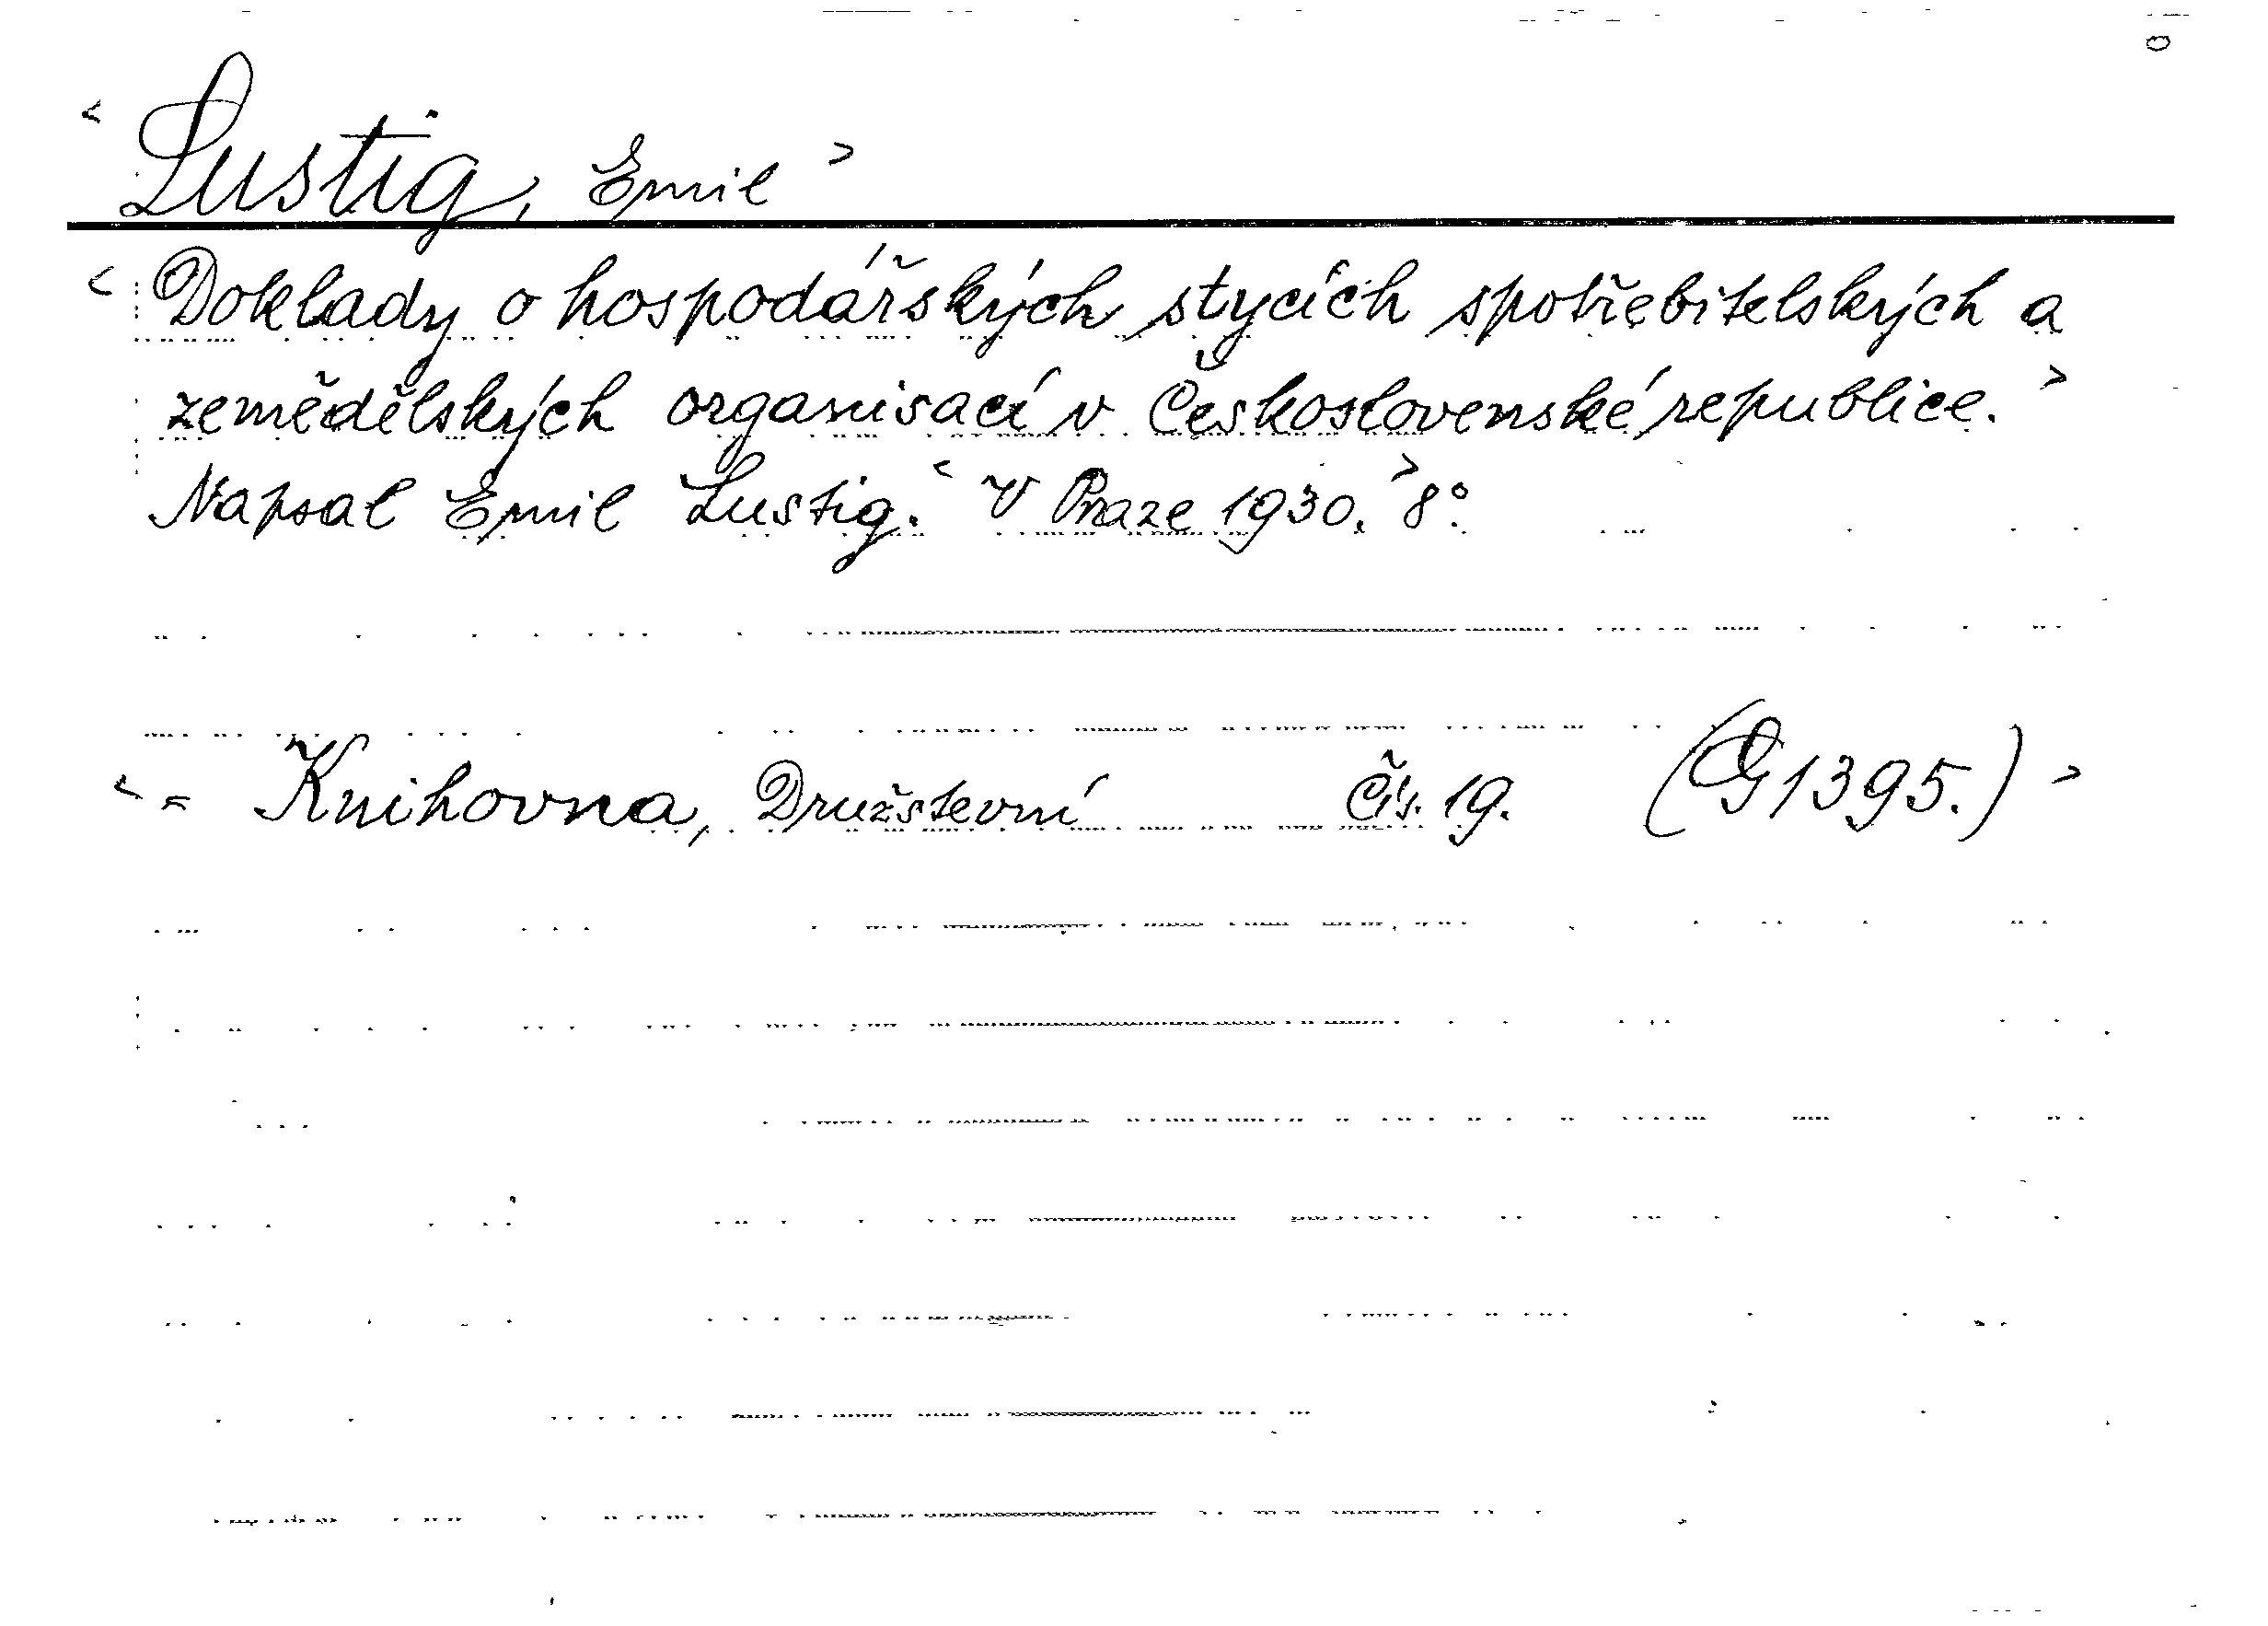 < Lustig, Emil >
< Doklady o hospodářských stycích spotřebitelských a
zemědělských organisací v Československé republice. >
Napsal Emil Lustig. < V Praze 1930. > 8°.
< = Knihovna, Družstevní Čís. 19. (G 1395.) >